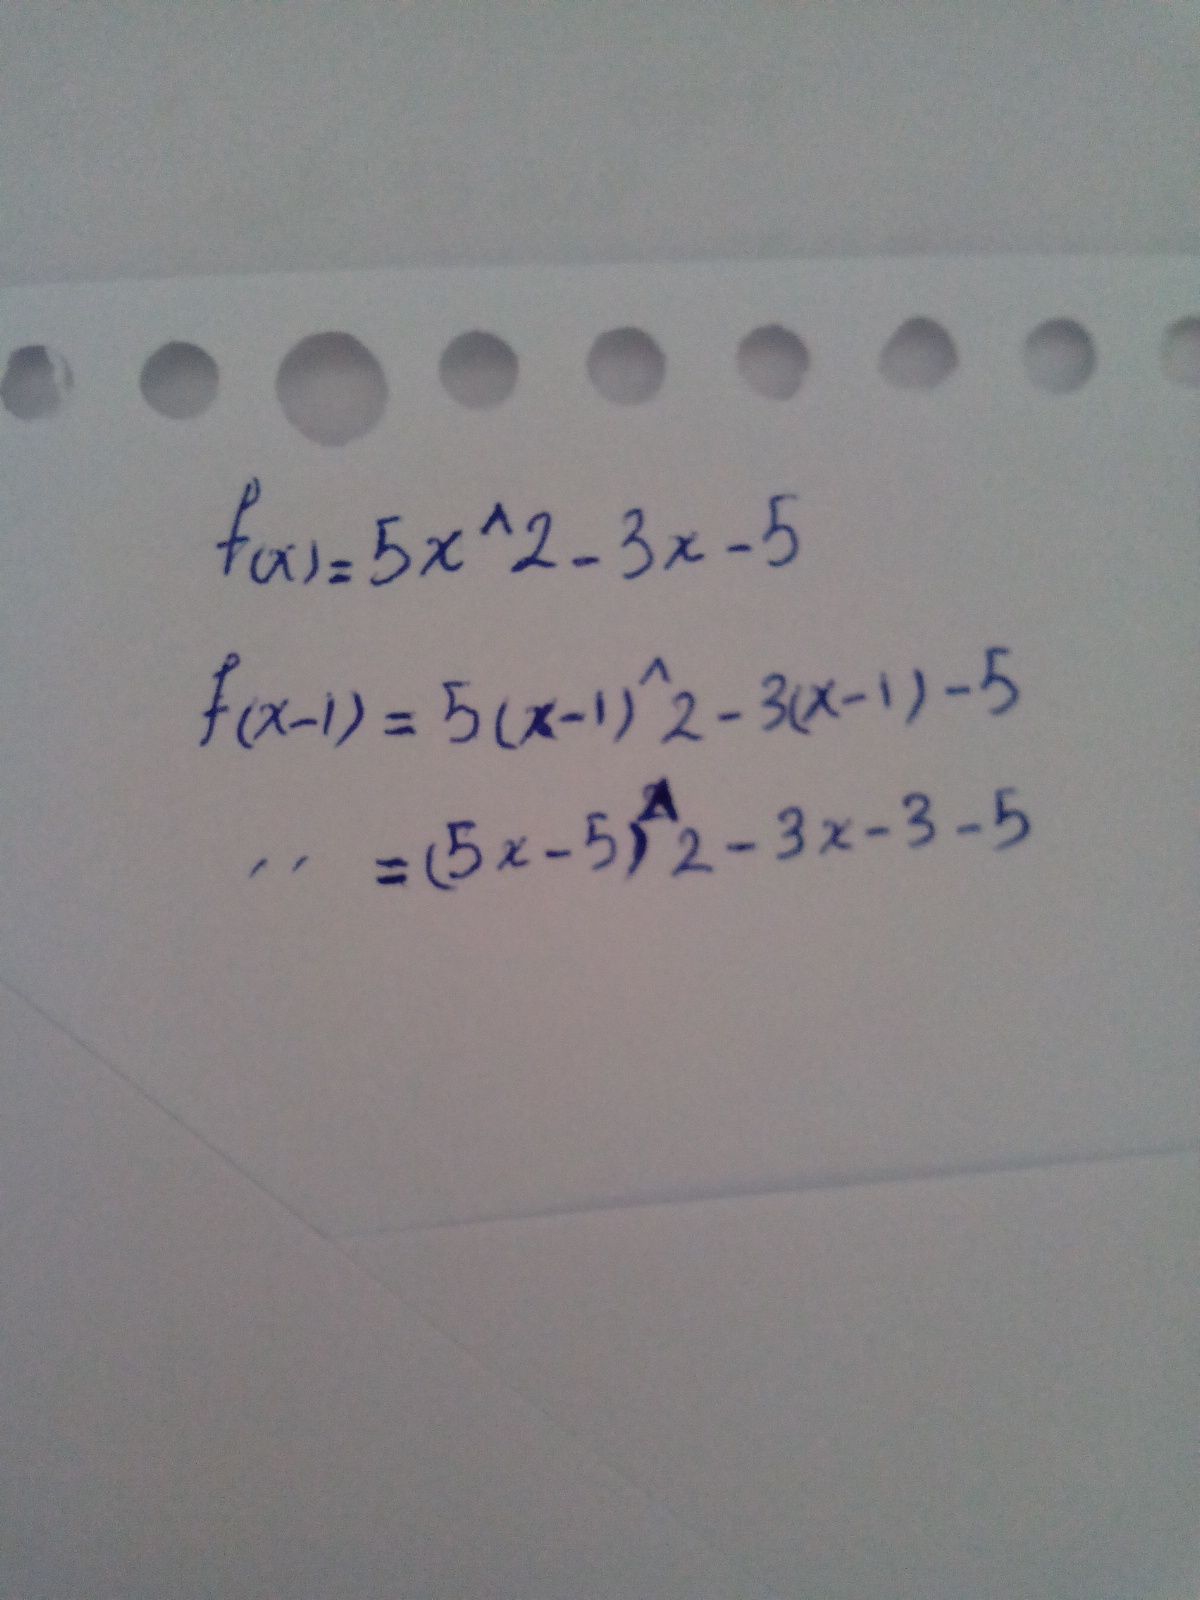 f(x) = 5x^2 - 3x - 5
f(x-1) = 5(x-1)^2 - 3(x-1) - 5
'' = (5x-5)^2 - 3x - 3 - 5